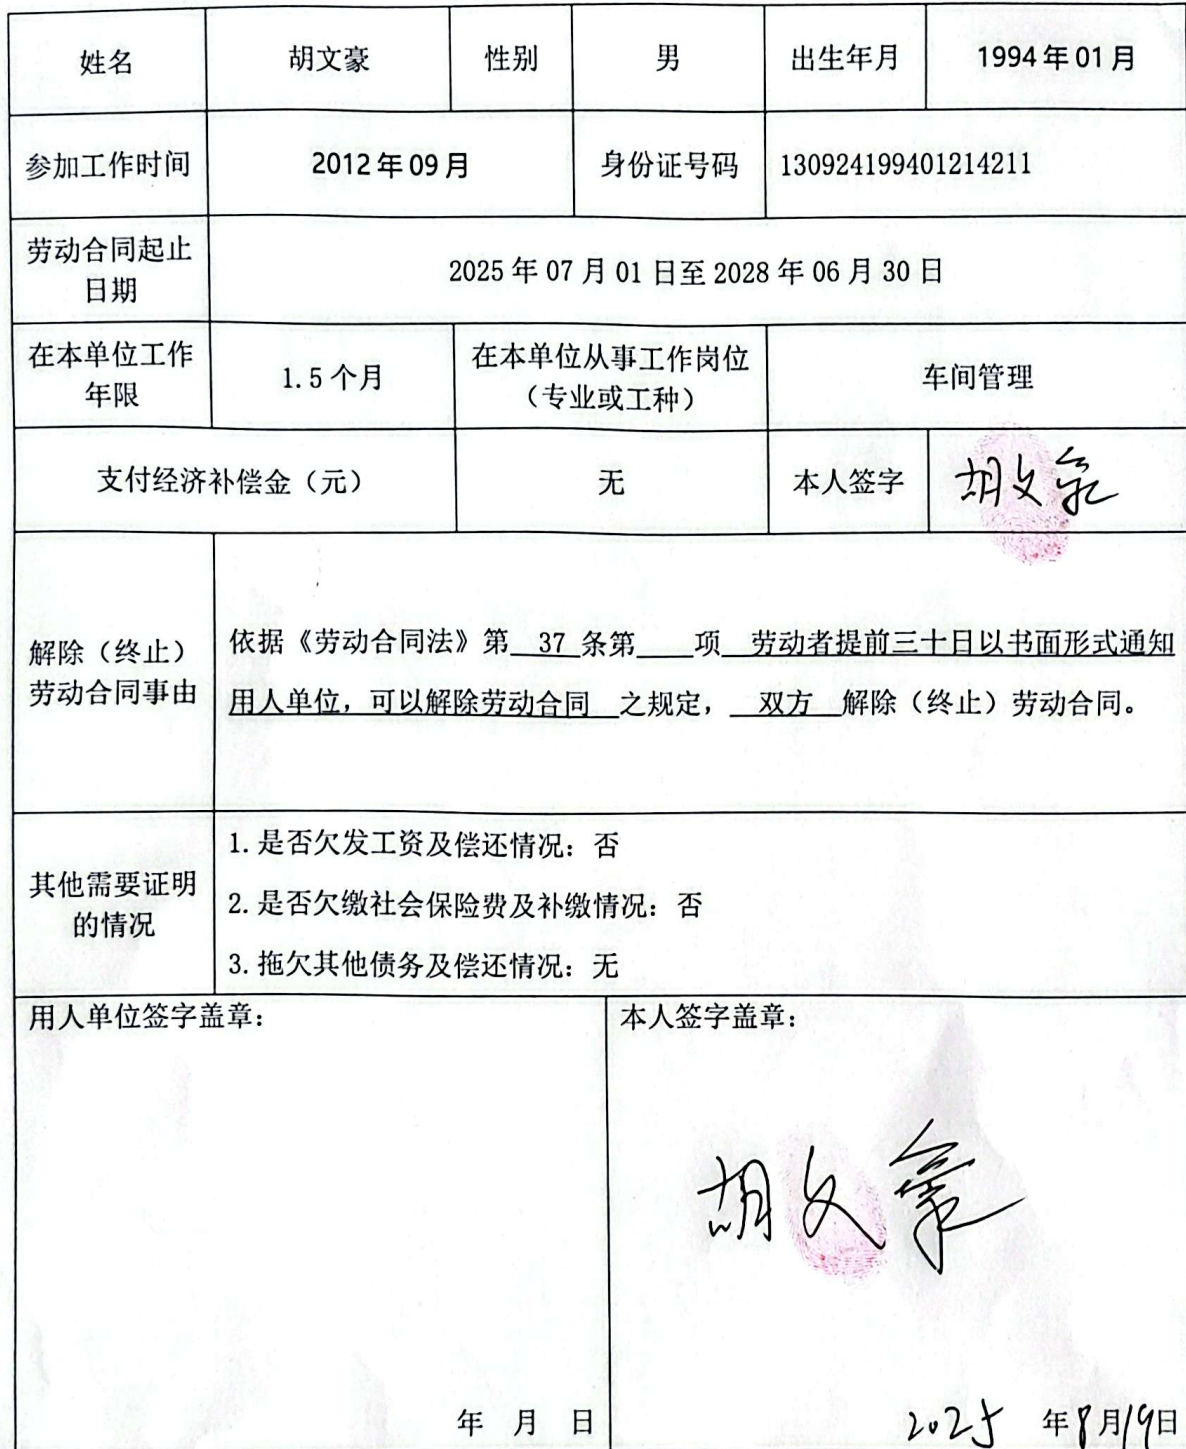 姓名 胡文豪 性别 男 出生年月 1994年01月
参加工作时间 2012年09月 身份证号码 130924199401214211
劳动合同起止
日期
2025年07月01日至2028年06月30日
在本单位工作
年限
1.5个月
在本单位从事工作岗位
（专业或工种）
车间管理
支付经济补偿金（元） 无 本人签字 胡文豪
解除（终止）
劳动合同事由
依据《劳动合同法》第 37 条第____项 劳动者提前三十日以书面形式通知
用人单位，可以解除劳动合同 之规定， 双方 解除（终止）劳动合同。
其他需要证明
的情况
1.是否欠发工资及偿还情况：否
2.是否欠缴社会保险费及补缴情况：否
3.拖欠其他债务及偿还情况：无
用人单位签字盖章：
年 月 日
本人签字盖章：
胡文豪
2025 年8月19日